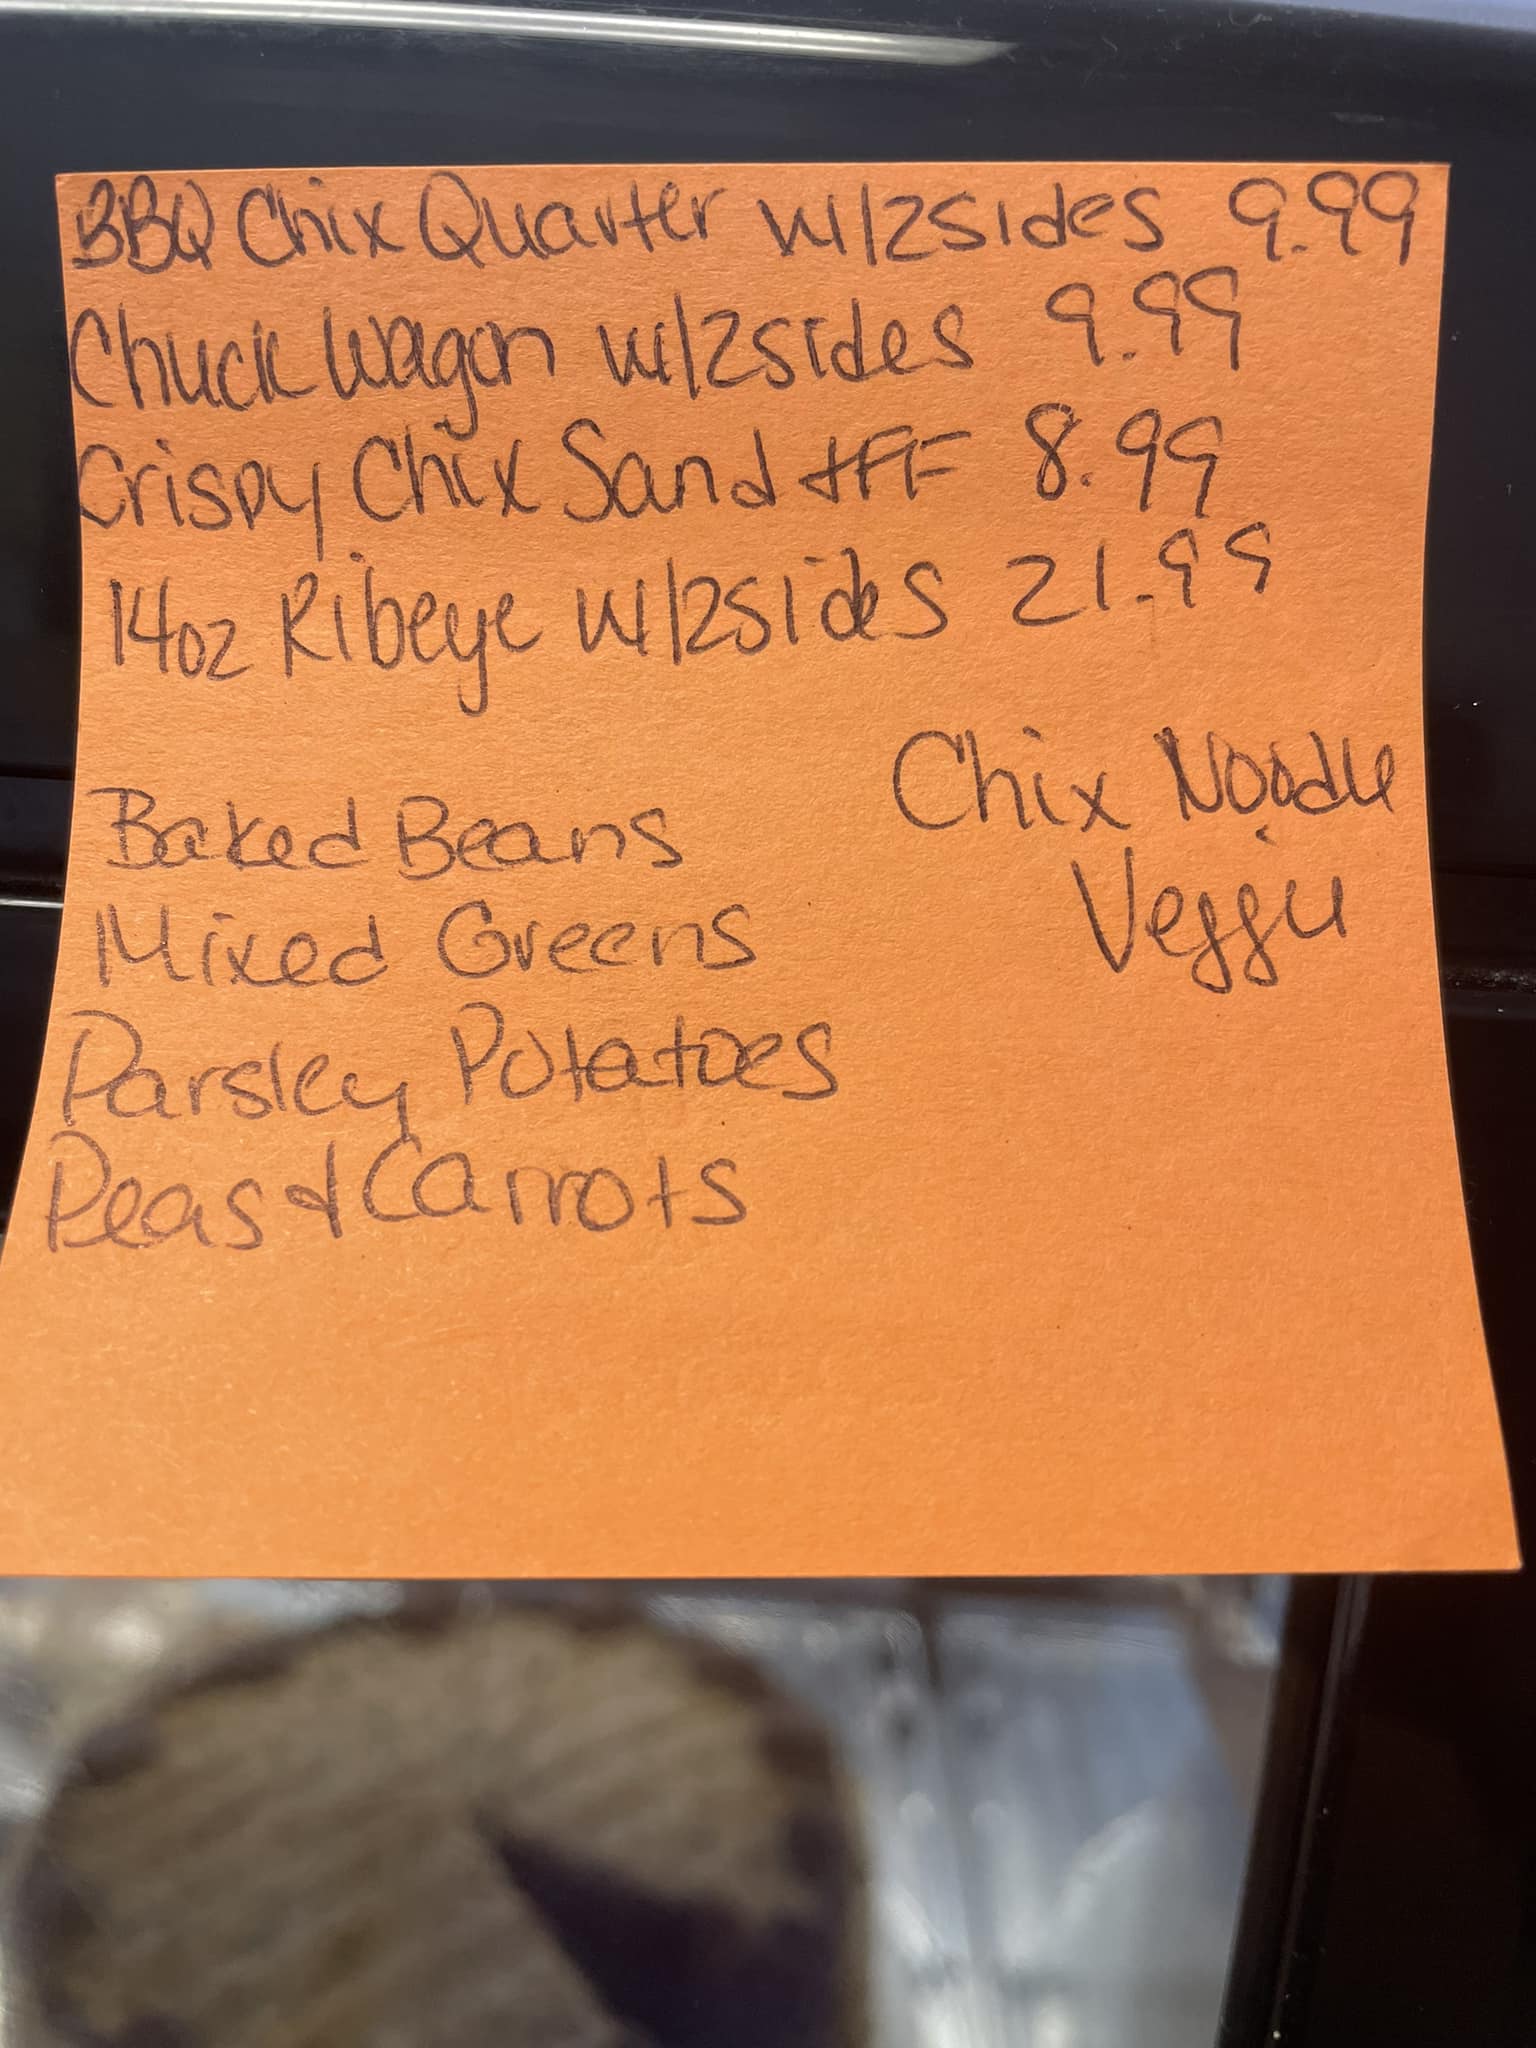 BBQ Chix Quarter w/2sides 9.99
Chuck Wagon w/2sides 9.99
Crispy Chix Sand + FF 8.99
14oz Ribeye w/2sides 21.99
Baked Beans
Mixed Greens
Parsley Potatoes
Peas & Carrots
Chix Noodle
Veggie